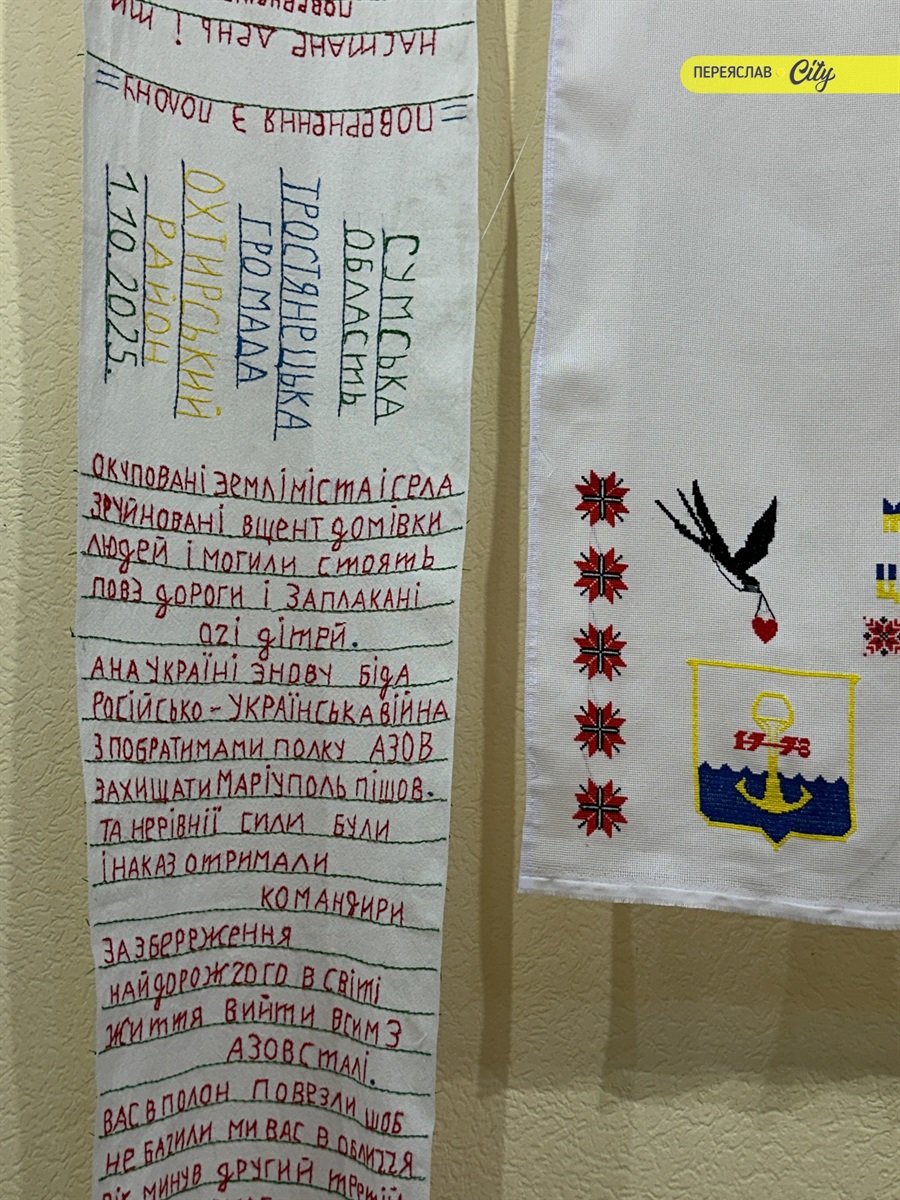 ПЕРЕЯСЛАВ City
НАСТАНЕ ДЕНЬ І
=ПОВЕРНЕННЯ З ПОЛОНУ=
СУМСЬКА
ОБЛАСТЬ
ТРОСТЯНЕЦЬКА
ГРОМАДА
ОХТИРСЬКИЙ
РАЙОН
1.10.2025.
ОКУПОВАНІ ЗЕМЛІ МІСТА І СЕЛА
ЗРУЙНОВАНІ ВЩЕНТ ДОМІВКИ
ЛЮДЕЙ І МОГИЛИ СТОЯТЬ
ПОВЗ ДОРОГИ І ЗАПЛАКАНІ
ОЧІ ДІТЕЙ.
А НА УКРАЇНІ ЗНОВУ БІДА
РОСІЙСЬКО-УКРАЇНСЬКА ВІЙНА
З ПОБРАТИМАМИ ПОЛКУ АЗОВ
ЗАХИЩАТИ МАРІУПОЛЬ ПІШОВ.
ТА НЕРІВНІЇ СИЛИ БУЛИ
І НАКАЗ ОТРИМАЛИ
КОМАНДИРИ
ЗА ЗБЕРЕЖЕННЯ
НАЙДОРОЖЧОГО В СВІТІ
ЖИТТЯ ВИЙТИ ВСИМ З
АЗОВСТАЛІ.
ВАС В ПОЛОН ПОВЕЗЛИ ЩОБ
НЕ БАЧИЛИ МИ ВАС В ОБЛИЧЧЯ
РІК МИНУВ ДРУГИЙ
1778